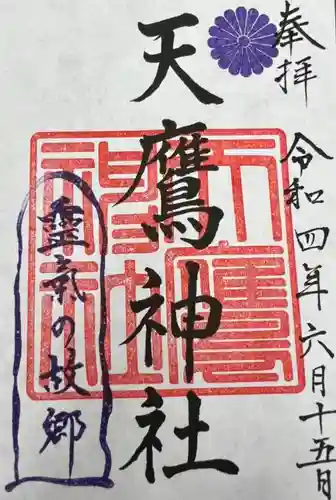 奉拝
令和四年六月十五日
天鷹神社
天鷹神社
霊気の故郷